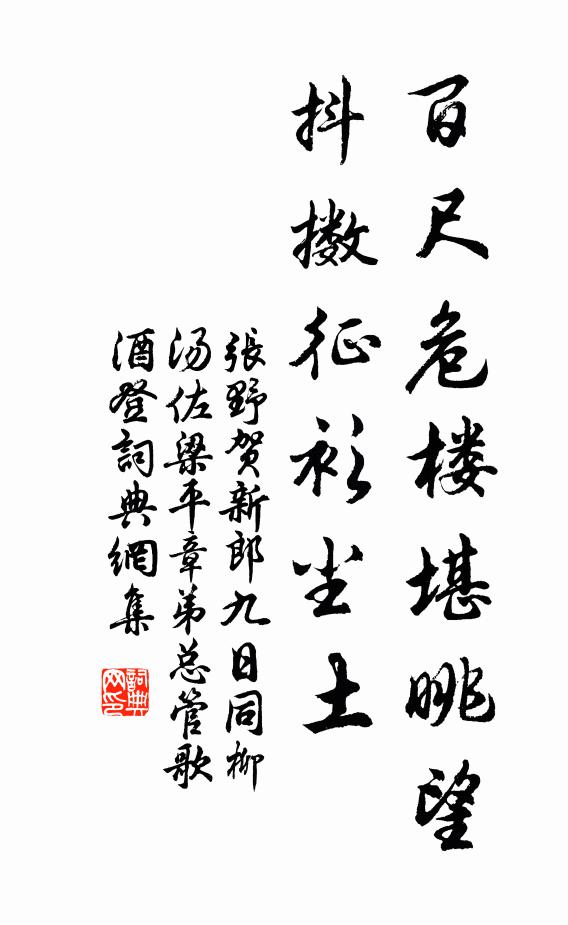 百尺危楼堪眺望
抖擞征衫尘土
張野贺新郎九日同柳
汤佐梁平章弟总管歌
酒登詞典網集
詞典网印